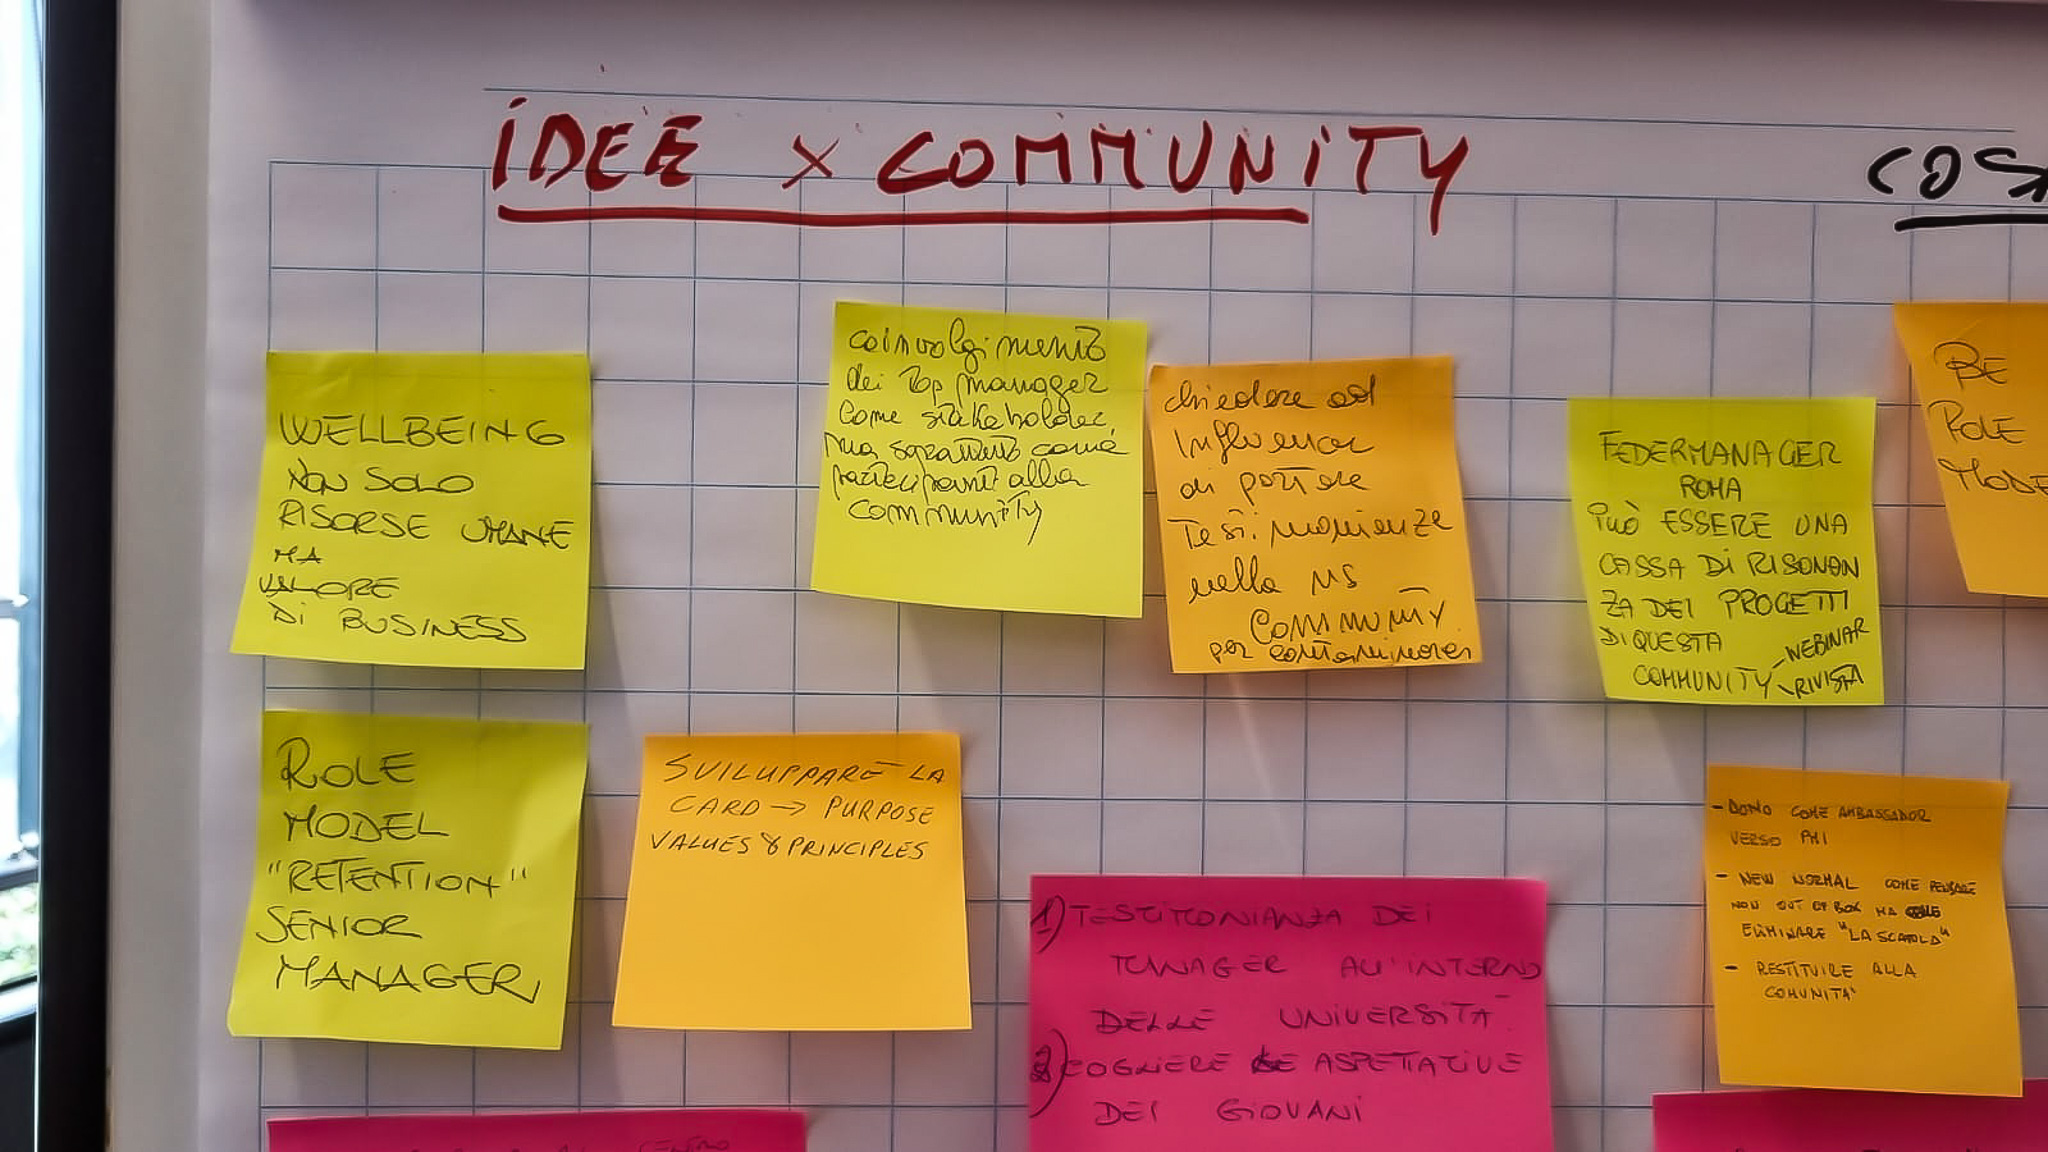 IDEE X COMMUNITY
COS
WELLBEING
NON SOLO
RISORSE UMANE
MA
VALORE
DI BUSINESS
coinvolgimento
dei Top manager
come stakeholder,
ma soprattutto come
partecipanti alla
COMMUNITY
chiedere ad
Influencer
di portare
Testimonianze
nella NS
COMMUNITY
per contaminarci
FEDERMANAGER
ROMA
Può ESSERE UNA
CASSA DI RISONAN
ZA DEI PROGETTI
DI QUESTA
COMMUNITY
WEBINAR
RIVISTA
BE
ROLE
MODE
ROLE
MODEL
"RETENTION"
SENIOR
MANAGER
SVILUPPARE LA
CARD → PURPOSE
VALUES & PRINCIPLES
1) TESTIMONIANZA DEI
MANAGER ALL'INTERNO
DELLE UNIVERSITÀ
2) COGLIERE LE ASPETTATIVE
DEI GIOVANI
- DONO COME AMBASSADOR
VERSO PMI
- NEW NORMAL COME PENSARE
NON OUT OF BOX MA
ELIMINARE "LA SCATOLA"
- RESTITUIRE ALLA
COMUNITA'
CENTRO